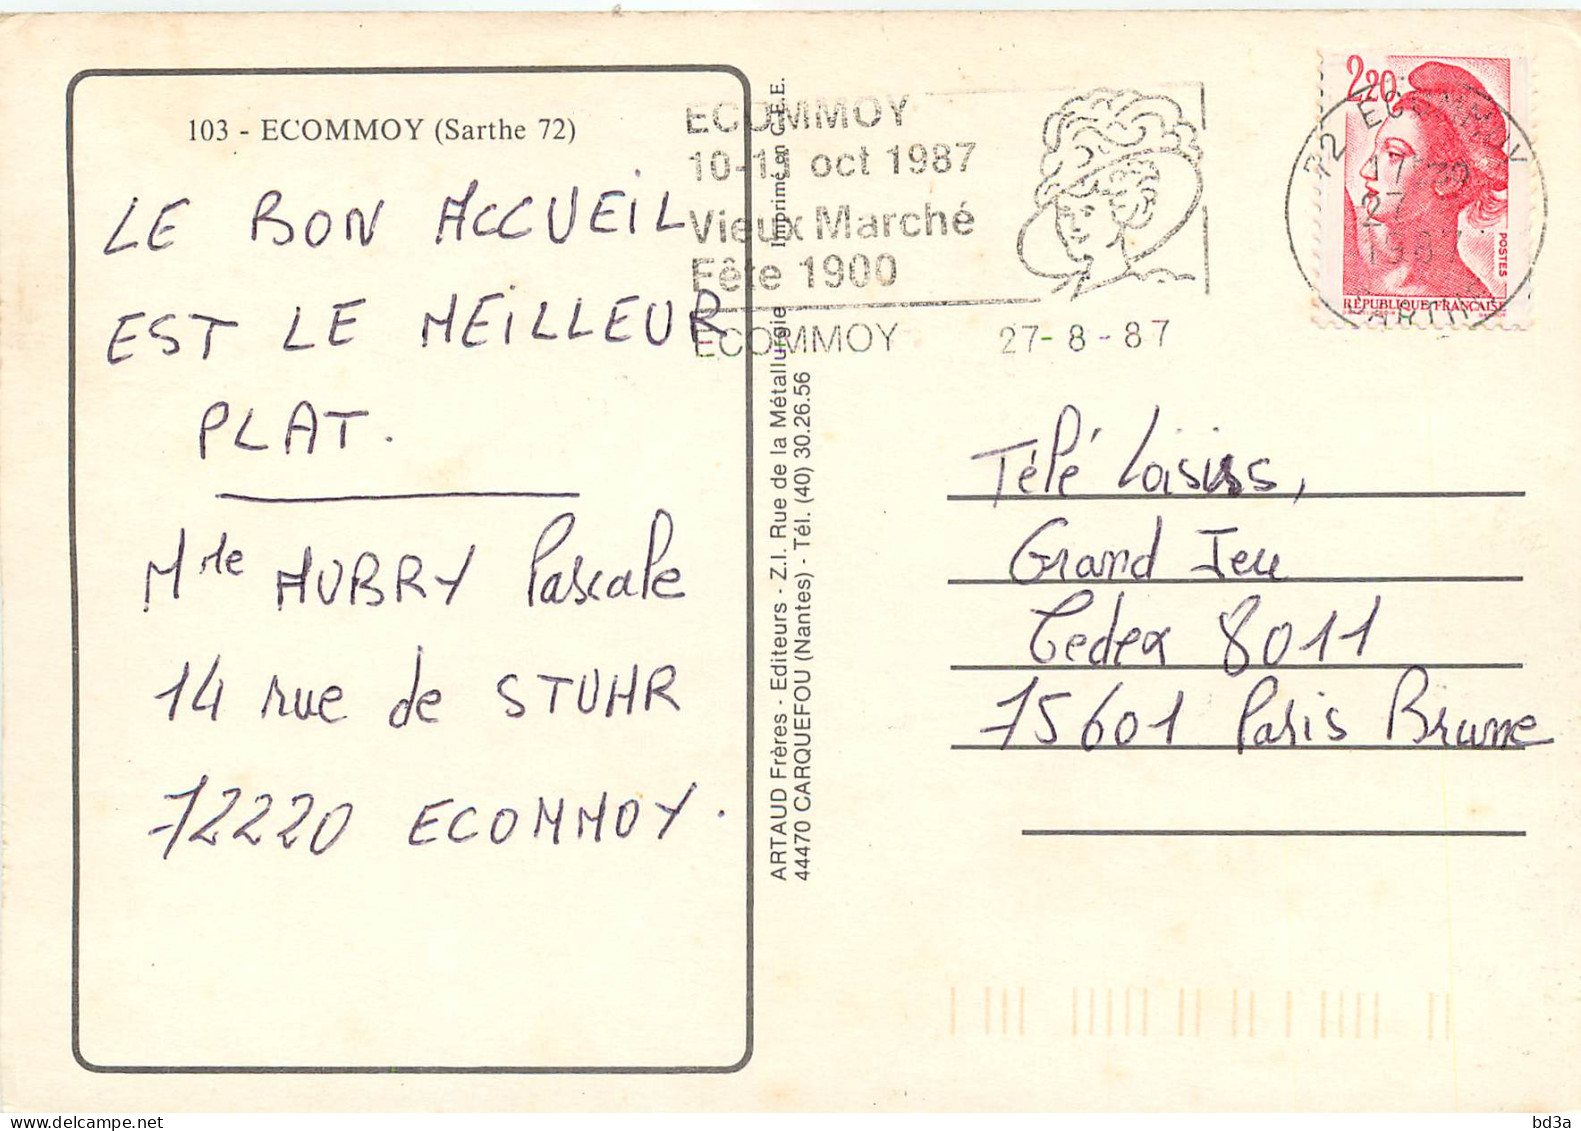 103 - ECOMMOY (Sarthe 72)
LE BON ACCUEIL
EST LE MEILLEUR
PLAT.
Mlle AUBRY Pascale
14 rue de STUHR
72220 ECOMMOY.
ECOMMOY
10-11 oct 1987
Vieux Marché
Fête 1900
ECOMMOY 27-8-87
ARTAUD Frères - Editeurs - Z.I. Rue de la Métallurgie Imprimé en C.E.E.
44470 CARQUEFOU (Nantes) - Tél. (40) 30.26.56
2,20
POSTES
RÉPUBLIQUE FRANÇAISE
72 ECOMMOY
27
1987
Télé Loisirs,
Grand Jeu
Cedex 8011
75601 Paris Brune
bd3a